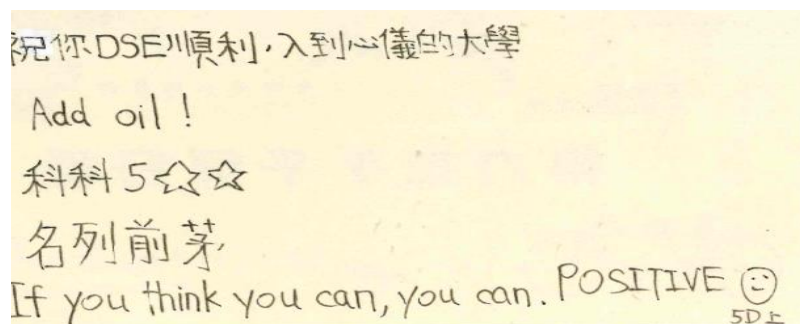 祝你DSE順利,入到心儀的大學
Add oil!
科科5☆☆
名列前茅,
If you think you can, you can. POSITIVE ☺
5D上